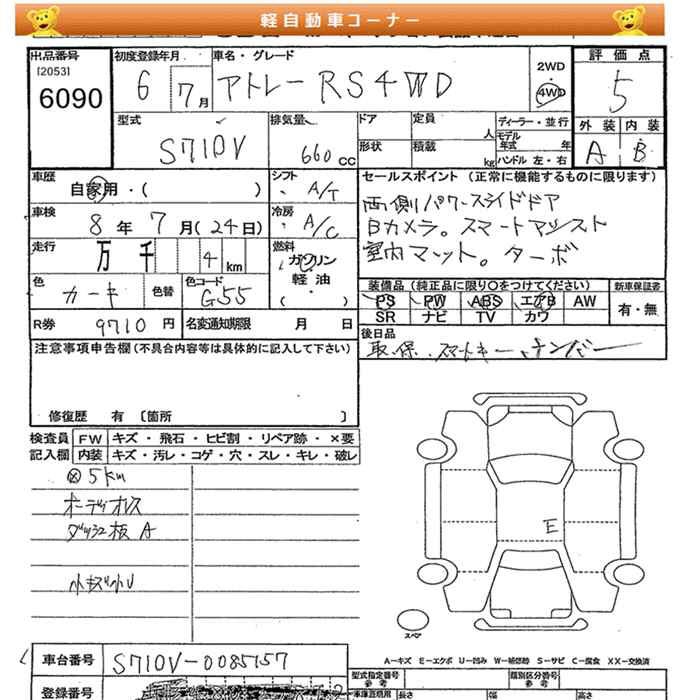 軽自動車コーナー
出品番号 初度登録年月 車名・グレード 評価点
[2053]
6090
6 7月 アトレーRS4WD
2WD
4WD
5
型式 排気量 ドア 定員 人 ディーラー・並行 外装 内装
モデル年式 年
S710V 660cc
形状 積載 kg ハンドル 左・右
A B
車歴 自家用・( )
シフト A/T
セールスポイント (正常に機能するものに限ります)
両側パワースライドドア
Bカメラ。スマートアシスト
室内マット。ターボ
車検 8年7月(24日)
冷房 A/C
走行 万 千 4 km
燃料 ガソリン
軽油
( )
色 カーキ 色替 色コード G55
装備品 (純正品に限り○をつけてください) 新車保証書
PS PW ABS エアB AW
有・無
SR ナビ TV カワ
R券 9710円 名変通知期限 月 日
後日品
取.保.スマートキー.ナンバー
注意事項申告欄(不具合内容等は具体的に記入して下さい)
修復歴 有 〔箇所 〕
検査員 FW キズ・飛石・ヒビ割・リペア跡・×要
記入欄 内装 キズ・汚レ・コゲ・穴・スレ・キレ・破レ
⊗5km
オーディオレス
ダッシュ板 A
小キズ小U
E
スペア
車台番号 S710V-0085157
A-キズ E-エクボ U-凹み W-補修跡 S-サビ C-腐食 XX-交換済
登録番号
型式指定番号 類別区分番号
参考 参考
車庫証明用 長さ 幅 高さ